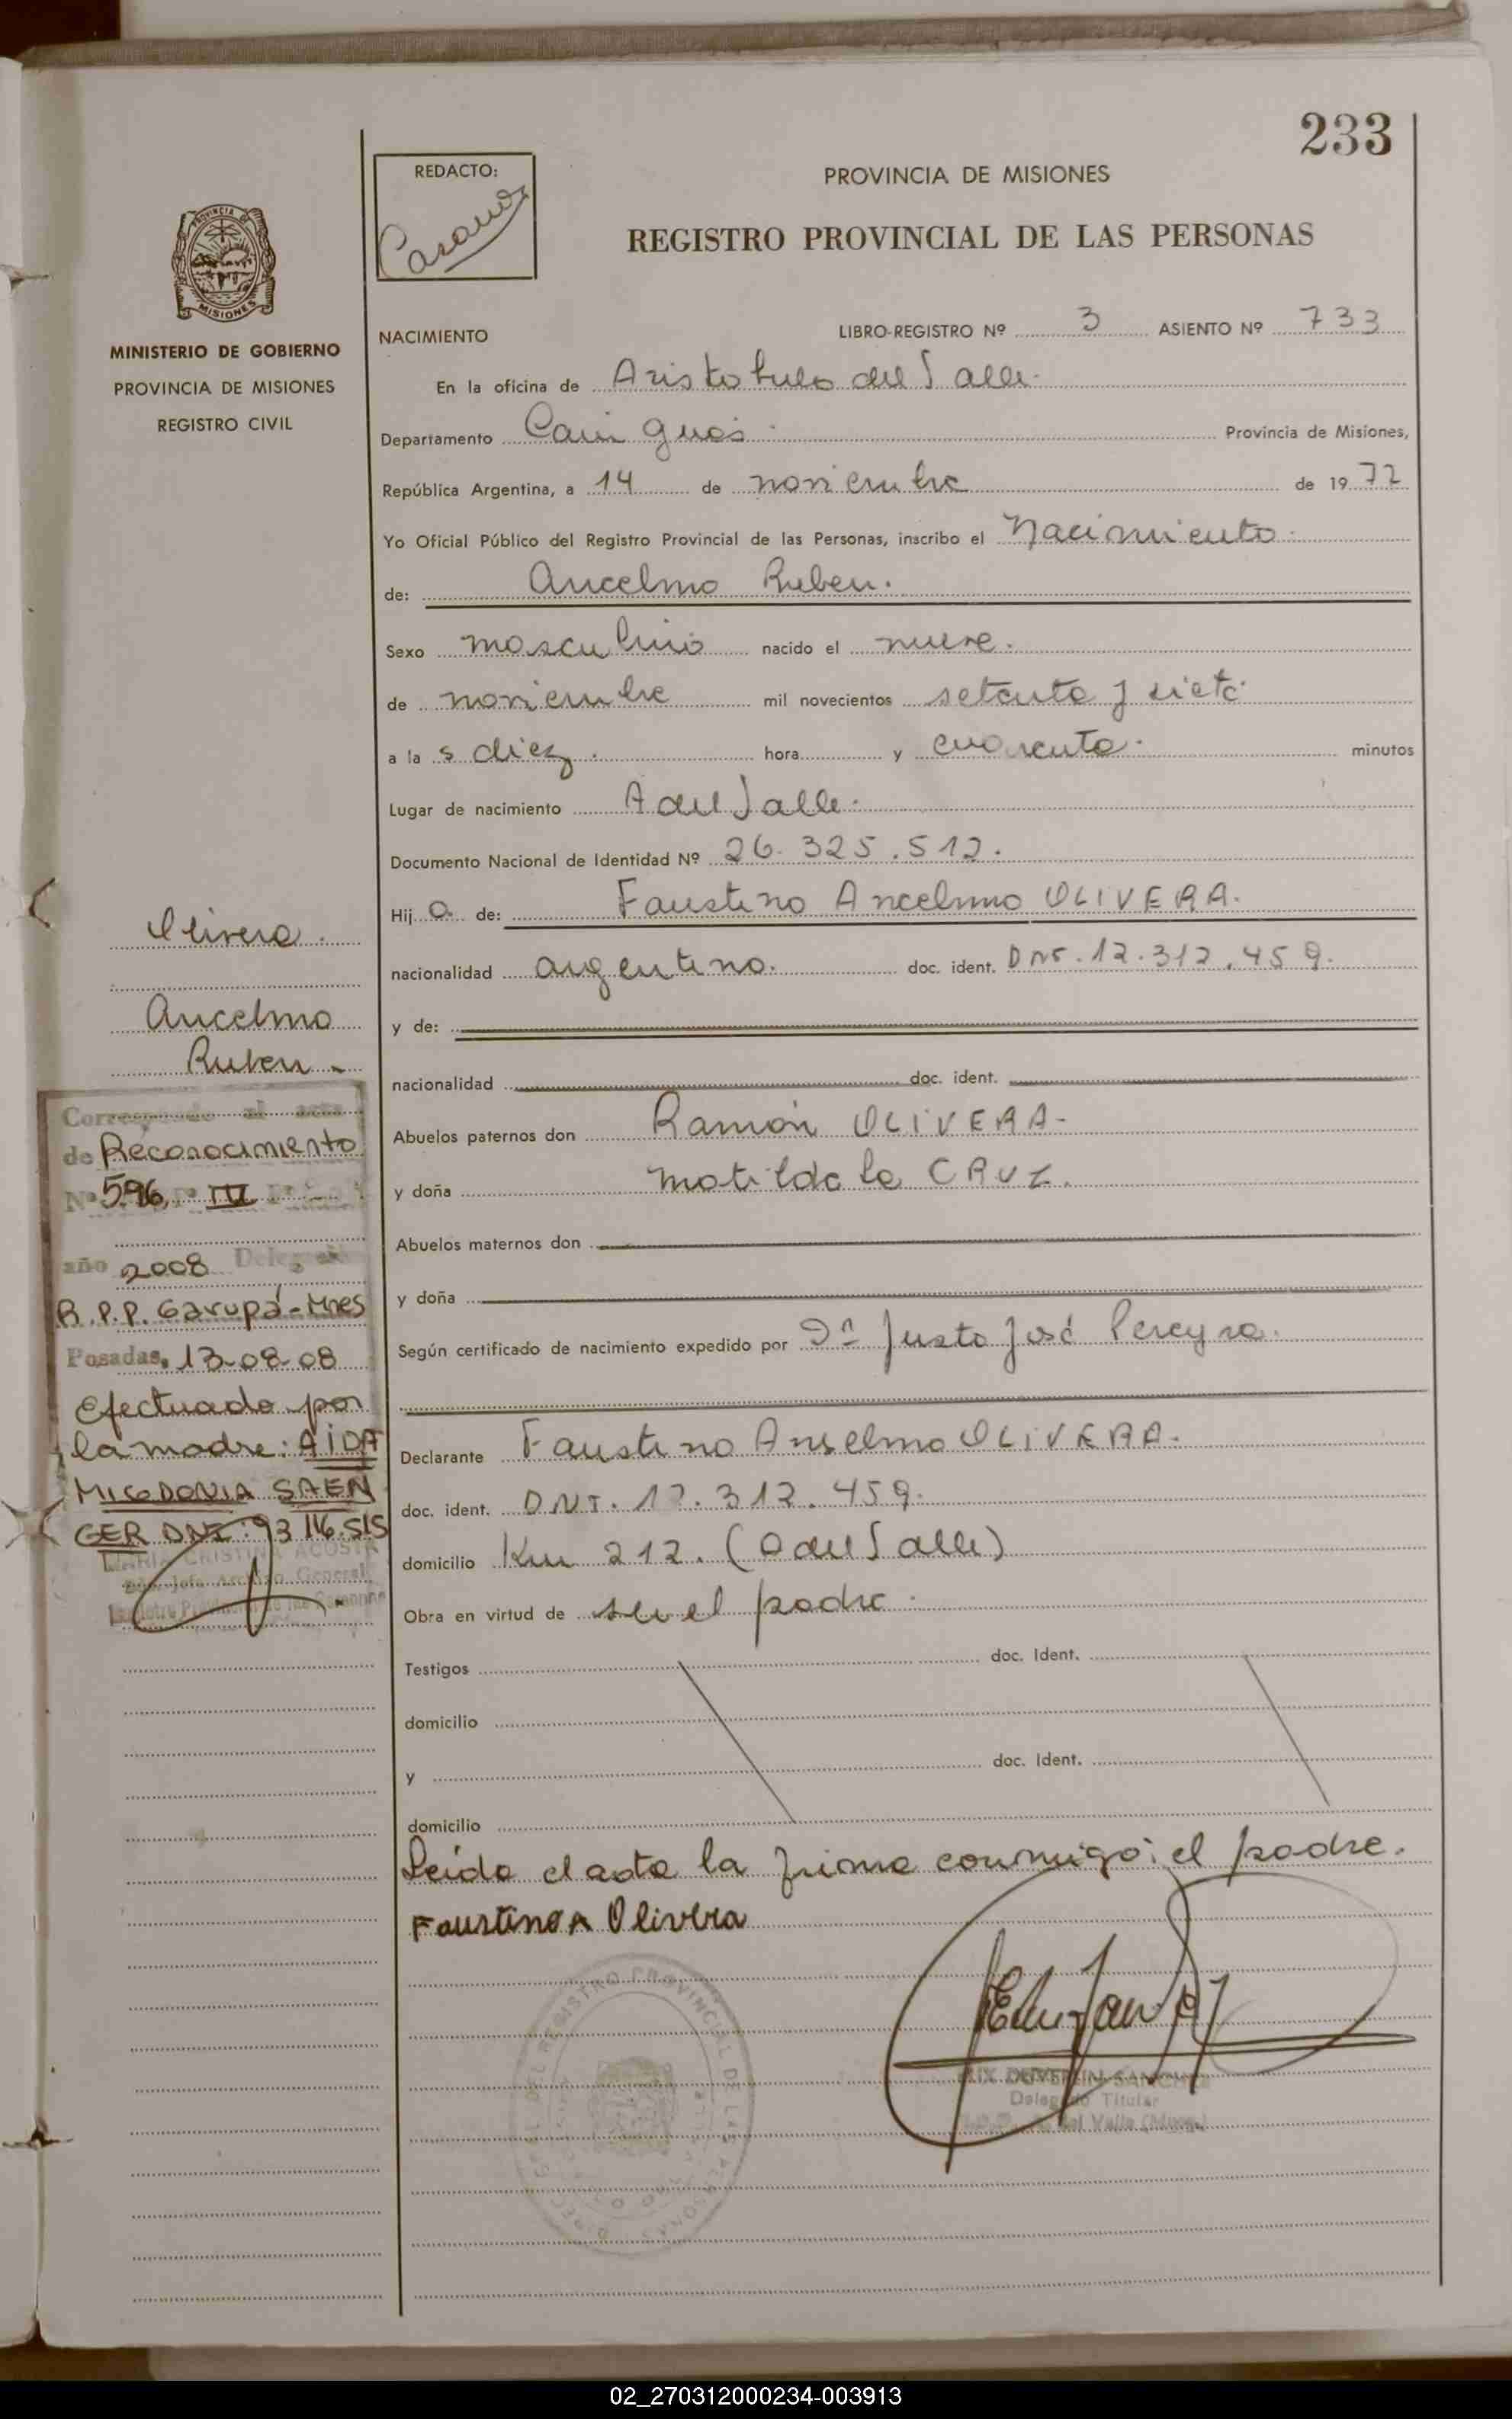 233
REDACTO:
PROVINCIA DE MISIONES
REGISTRO PROVINCIAL DE LAS PERSONAS
PROVINCIA DE
MISIONES
MINISTERIO DE GOBIERNO
PROVINCIA DE MISIONES
REGISTRO CIVIL
NACIMIENTO
LIBRO-REGISTRO Nº 3 ASIENTO Nº 733
En la oficina de Aristobulo del Valle.
Departamento Cain guas. Provincia de Misiones,
República Argentina, a 14 de noviembre de 1977
Yo Oficial Público del Registro Provincial de las Personas, inscribo el Nacimiento.
de: Ancelmo Ruben.
Sexo masculino nacido el nueve.
de noviembre mil novecientos setenta y siete.
a la s diez. hora y cuarenta. minutos
Lugar de nacimiento A del Valle.
Documento Nacional de Identidad Nº 26.325.512.
Hij o de: Faustino Ancelmo OLIVERA.
nacionalidad argentino. doc. ident. DNI. 12.312.459.
y de:
nacionalidad doc. ident.
Abuelos paternos don Ramón OLIVERA-
y doña Matilde la CRUZ.
Abuelos maternos don
y doña
Según certificado de nacimiento expedido por Dr Justo José Pereyra.
Declarante Faustino Anselmo OLIVERA.
doc. ident. DNI. 12.312.459.
domicilio Km 212. (A del Valle)
Obra en virtud de ser el padre.
Testigos doc. Ident.
domicilio
y doc. Ident.
domicilio
Leida el acta la firma conmigo: el padre.
Faustino A Olivera
Delegado Titular
del Valle
Olivera.
Ancelmo
Ruben.-
Corresponde al acta
de Reconocimiento
Nº 596, Tº III
año 2008 Delegación
R.P.P. Garupá-Mnes
Posadas, 13-08-08
Efectuado por
la madre: AIDA
MICEDONIA SAEN
GER DNI: 93 116.515
MARIA CRISTINA ACOSTA
Jefe Archivo General
Registro Provincial de las Personas
02_270312000234-003913